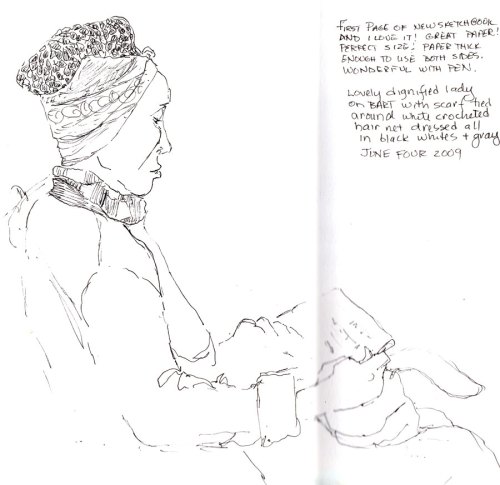 FIRST PAGE OF NEW SKETCHBOOK
AND I LOVE IT! GREAT PAPER!
PERFECT SIZE! PAPER THICK
ENOUGH TO USE BOTH SIDES.
WONDERFUL WITH PEN.
Lovely dignified lady
on BART with scarf tied
around white crocheted
hair net dressed all
in black whites + gray
JUNE FOUR 2009